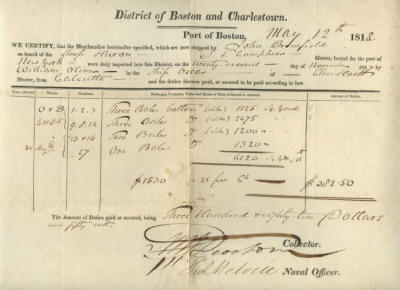 District of Boston and Charlestown.
Port of Boston, May 12th 1818
WE CERTIFY, that the Merchandize hereinafter specified, which are now shipped by John
on board of the Ship Huron Master, bound for the port of
New York were duly imported into this District, on the twenty second of November 1817 by
William Oliver in the Ship Oscar
Master, from Calcutta and the duties thereon paid, or secured to be paid according to law.
Marks. Numbers. Amount of Duties.
O & B 1.2.3 Three Bales Cottons 1125
9.8.12 Three Bales Do 2475
13 & 14 Two Bales Do 1200
27 One Bale Do 1320
6120
$1530 25 $382.50
The Amount of Duties paid or secured, being Three Hundred & eighty two Dollars
and fifty cents
Collector.
Melvill Naval Officer.